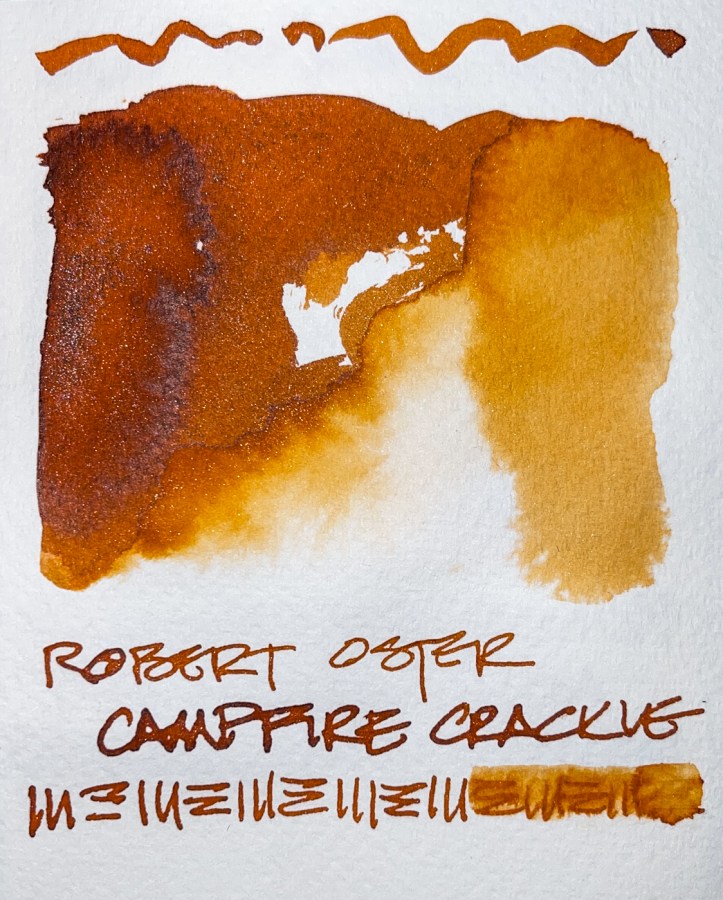 ROBERT OSTER
CAMPFIRE CRACKLE